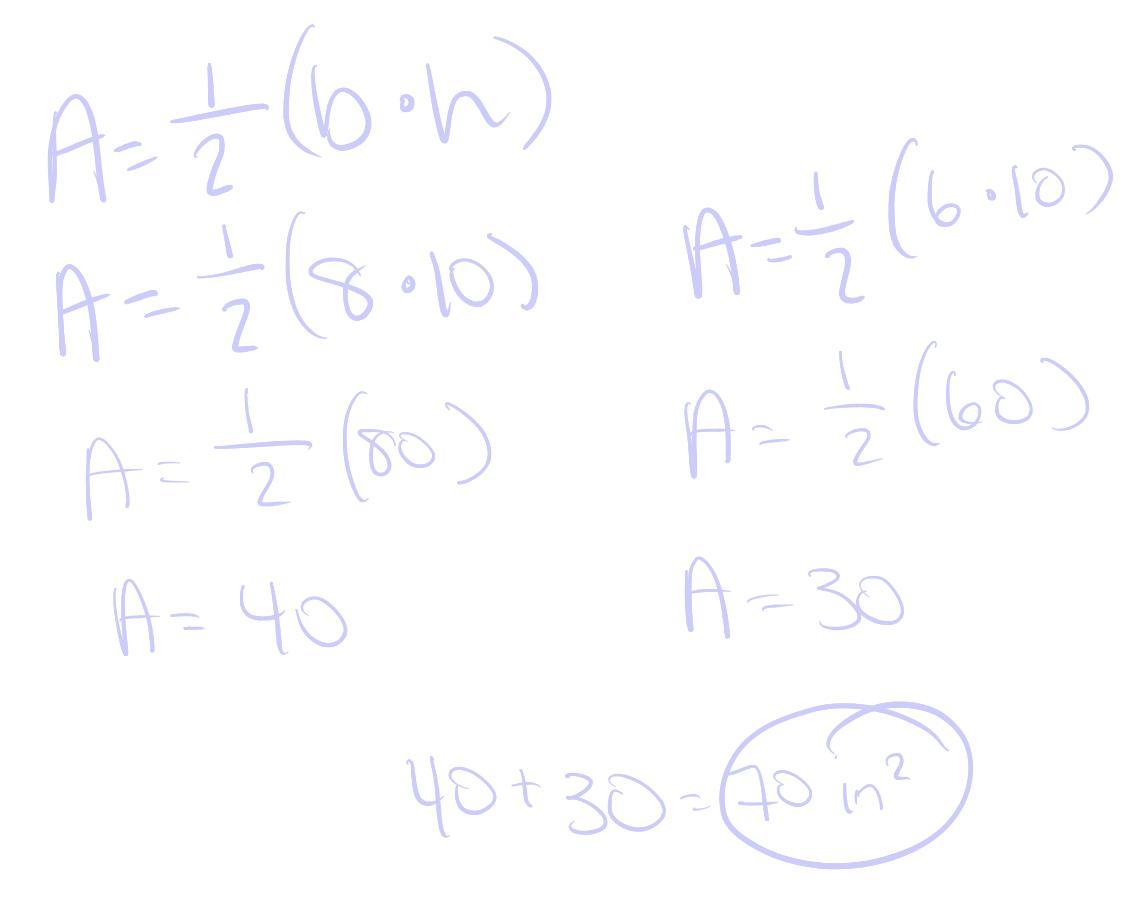 A = 1/2 (b · h)
A = 1/2 (8 · 10)
A = 1/2 (80)
A = 40
A = 1/2 (6 · 10)
A = 1/2 (60)
A = 30
40 + 30 = 70 in²